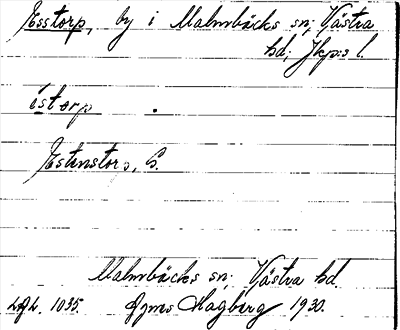 Esstorp, by i Malmbäcks sn; Västra
hd; Jkps l.
ístorp .
Estenstorp, S.
Malmbäcks sn; Västra hd.
1035. Hagberg 1930.